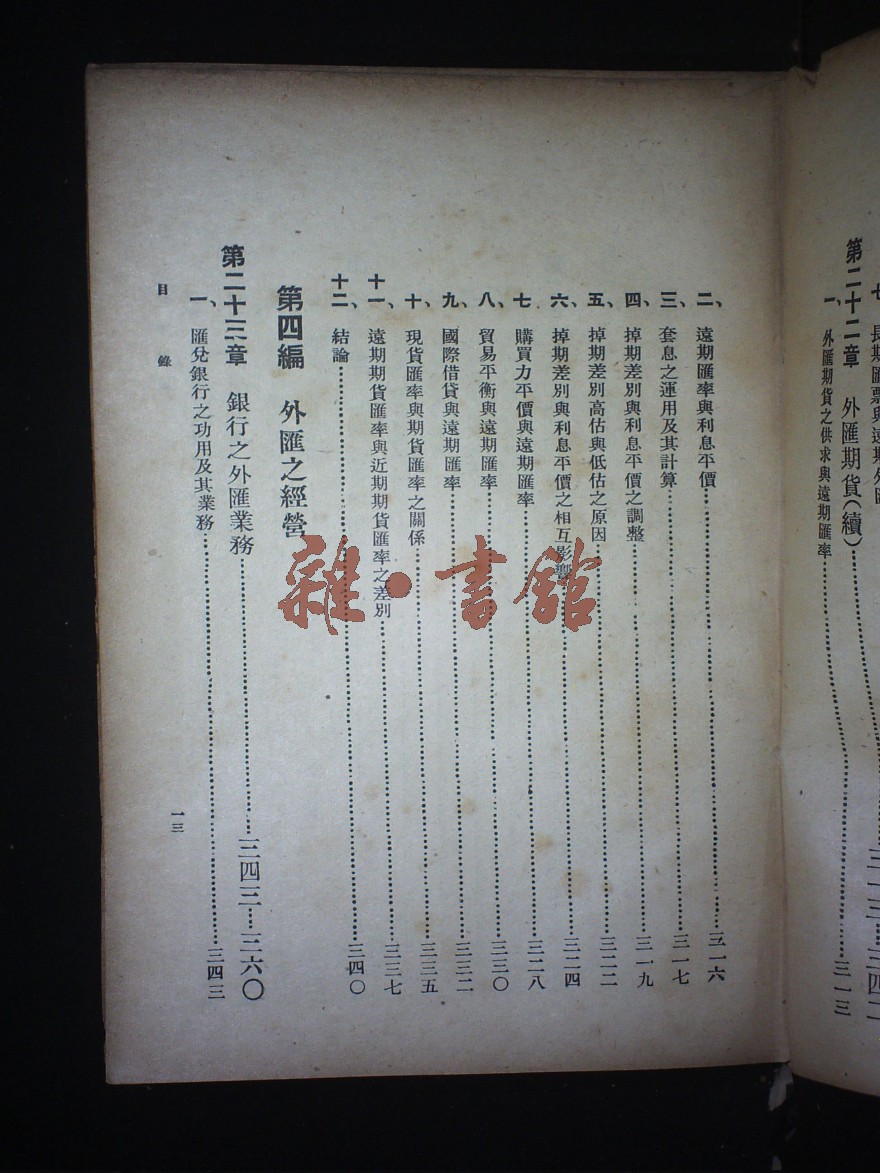 第二十二章　外匯期貨(續)……三一三—三四二
一、外匯期貨之供求與遠期匯率……三一三
二、遠期匯率與利息平價……三一六
三、套息之運用及其計算……三一七
四、掉期差別與利息平價之調整……三一九
五、掉期差別高估與低估之原因……三二二
六、掉期差別與利息平價之相互影響……三二四
七、購買力平價與遠期匯率……三二八
八、貿易平衡與遠期匯率……三三〇
九、國際借貸與遠期匯率……三三二
十、現貨匯率與期貨匯率之關係……三三五
十一、遠期期貨匯率與近期期貨匯率之差別……三三七
十二、結論……三四〇
第四編　外匯之經營
第二十三章　銀行之外匯業務……三四三—三六〇
一、匯兌銀行之功用及其業務……三四三
目錄
一三
雜·書館